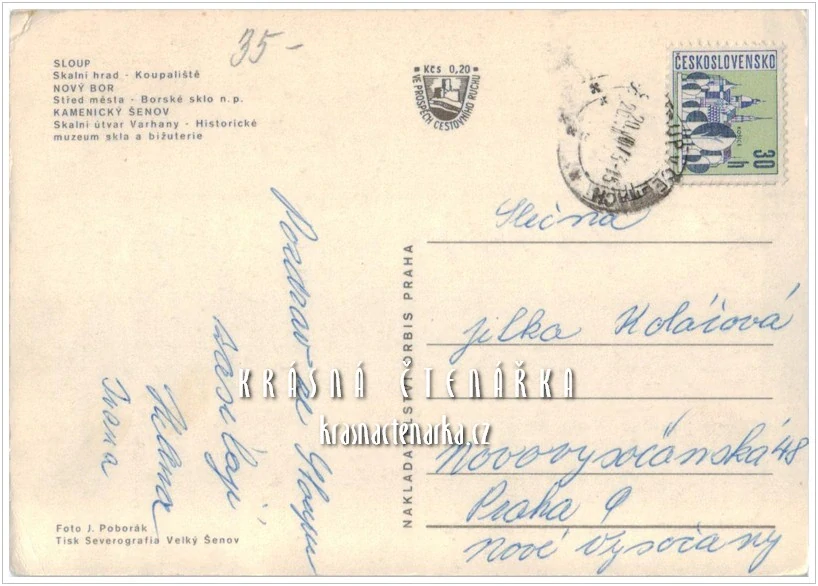 35-
SLOUP
Skalní hrad - Koupaliště
NOVÝ BOR
Střed města - Borské sklo n.p.
KAMENICKÝ ŠENOV
Skalní útvar Varhany - Historické
muzeum skla a bižuterie
Kčs 0,20
VE PROSPĚCH CESTOVNÍHO RUCHU
ČESKOSLOVENSKO
30 h
Pozdrav ze Sloupu
zasílají
Helena
Ivana
NAKLADATELSTVÍ ORBIS PRAHA
Slečna
Jilka Kolářová
Novovysočanská 48
Praha 9
Nové Vysočany
KRÁSNÁ ČTENÁŘKA
krasnactenarka.cz
Foto J. Poborák
Tisk Severografia Velký Šenov